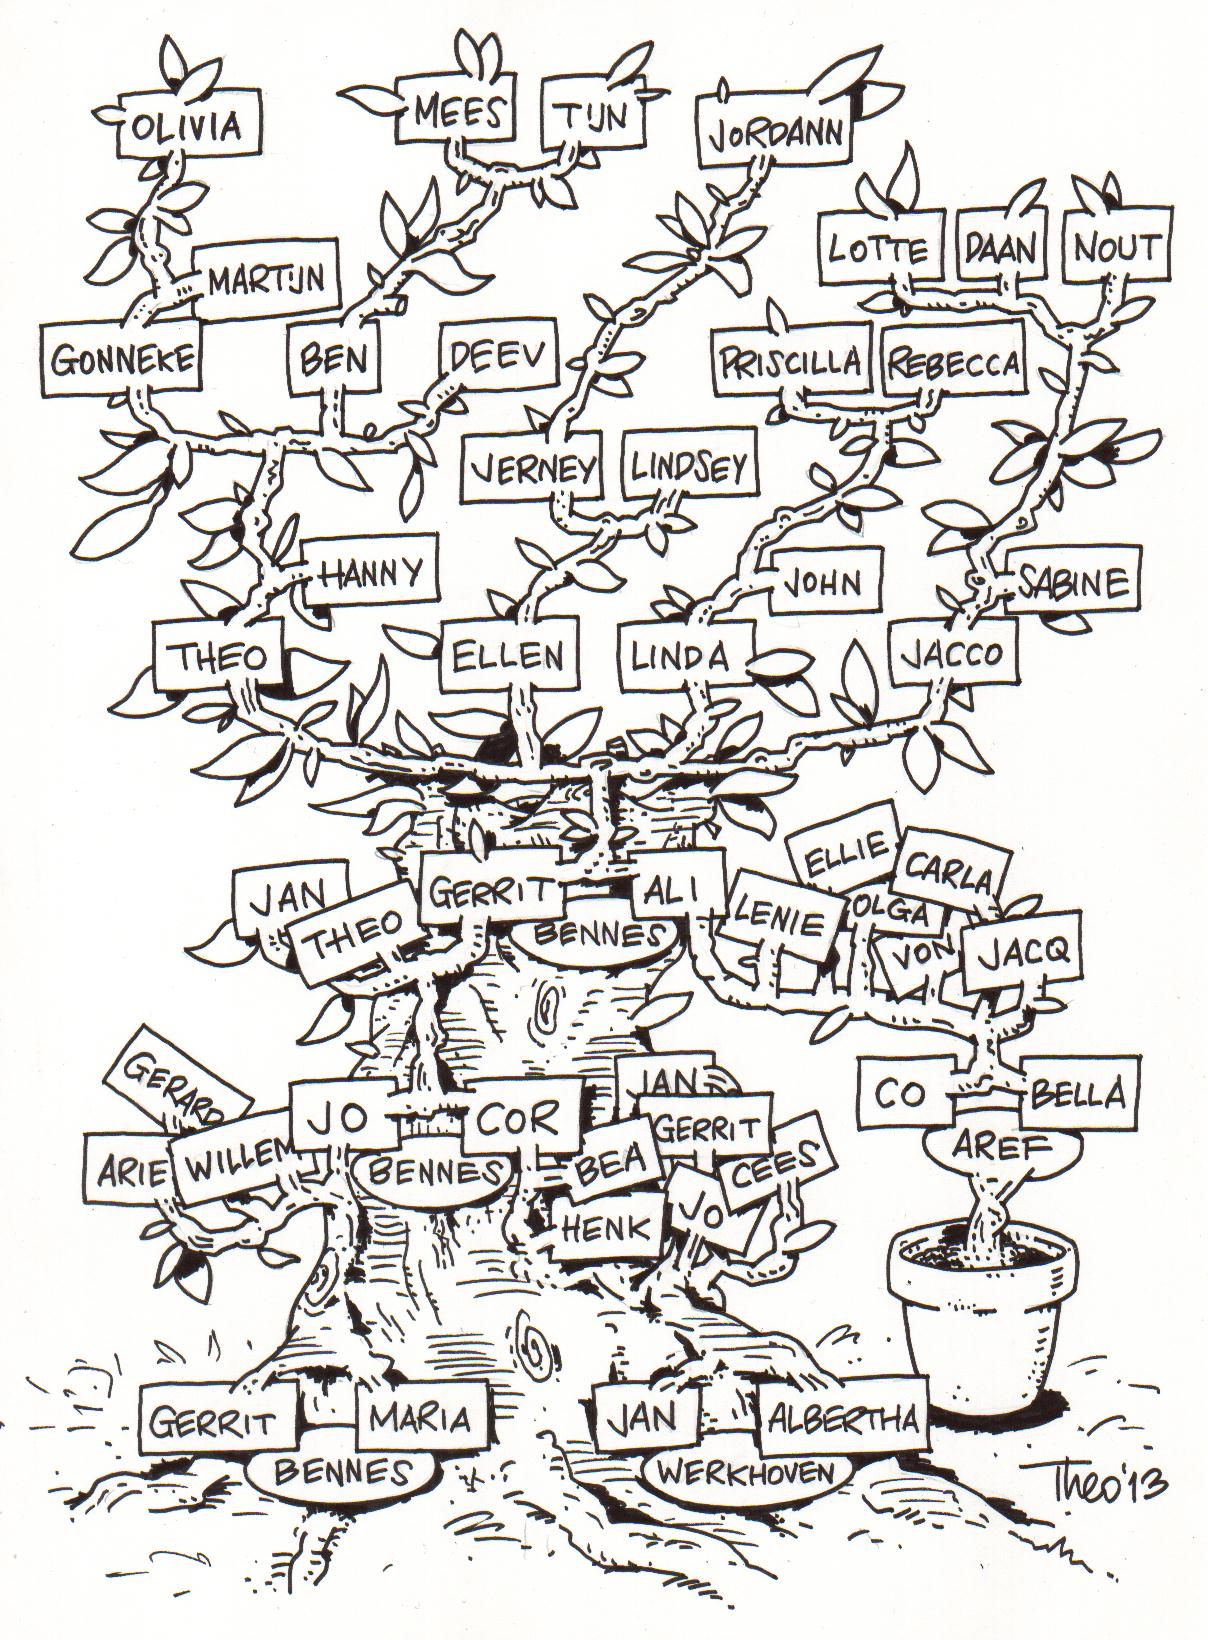 OLIVIA
MEES
TIJN
JORDANN
LOTTE
DAAN
NOUT
MARTIJN
GONNEKE
BEN
DEEV
PRISCILLA
REBECCA
JERNEY
LINDSEY
HANNY
JOHN
SABINE
THEO
ELLEN
LINDA
JACCO
ELLIE
CARLA
JAN
THEO
GERRIT
ALI
LENIE
OLGA
BENNES
VON
JACQ
GERARD
JO
COR
JAN
CO
BELLA
ARIE
WILLEM
BENNES
BEA
GERRIT
CEES
AREF
HENK
JO
GERRIT
MARIA
JAN
ALBERTHA
BENNES
WERKHOVEN
Theo'13